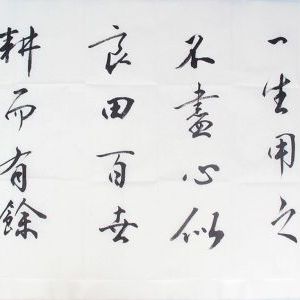 一生用之
不盡心似
良田百世
耕而有餘